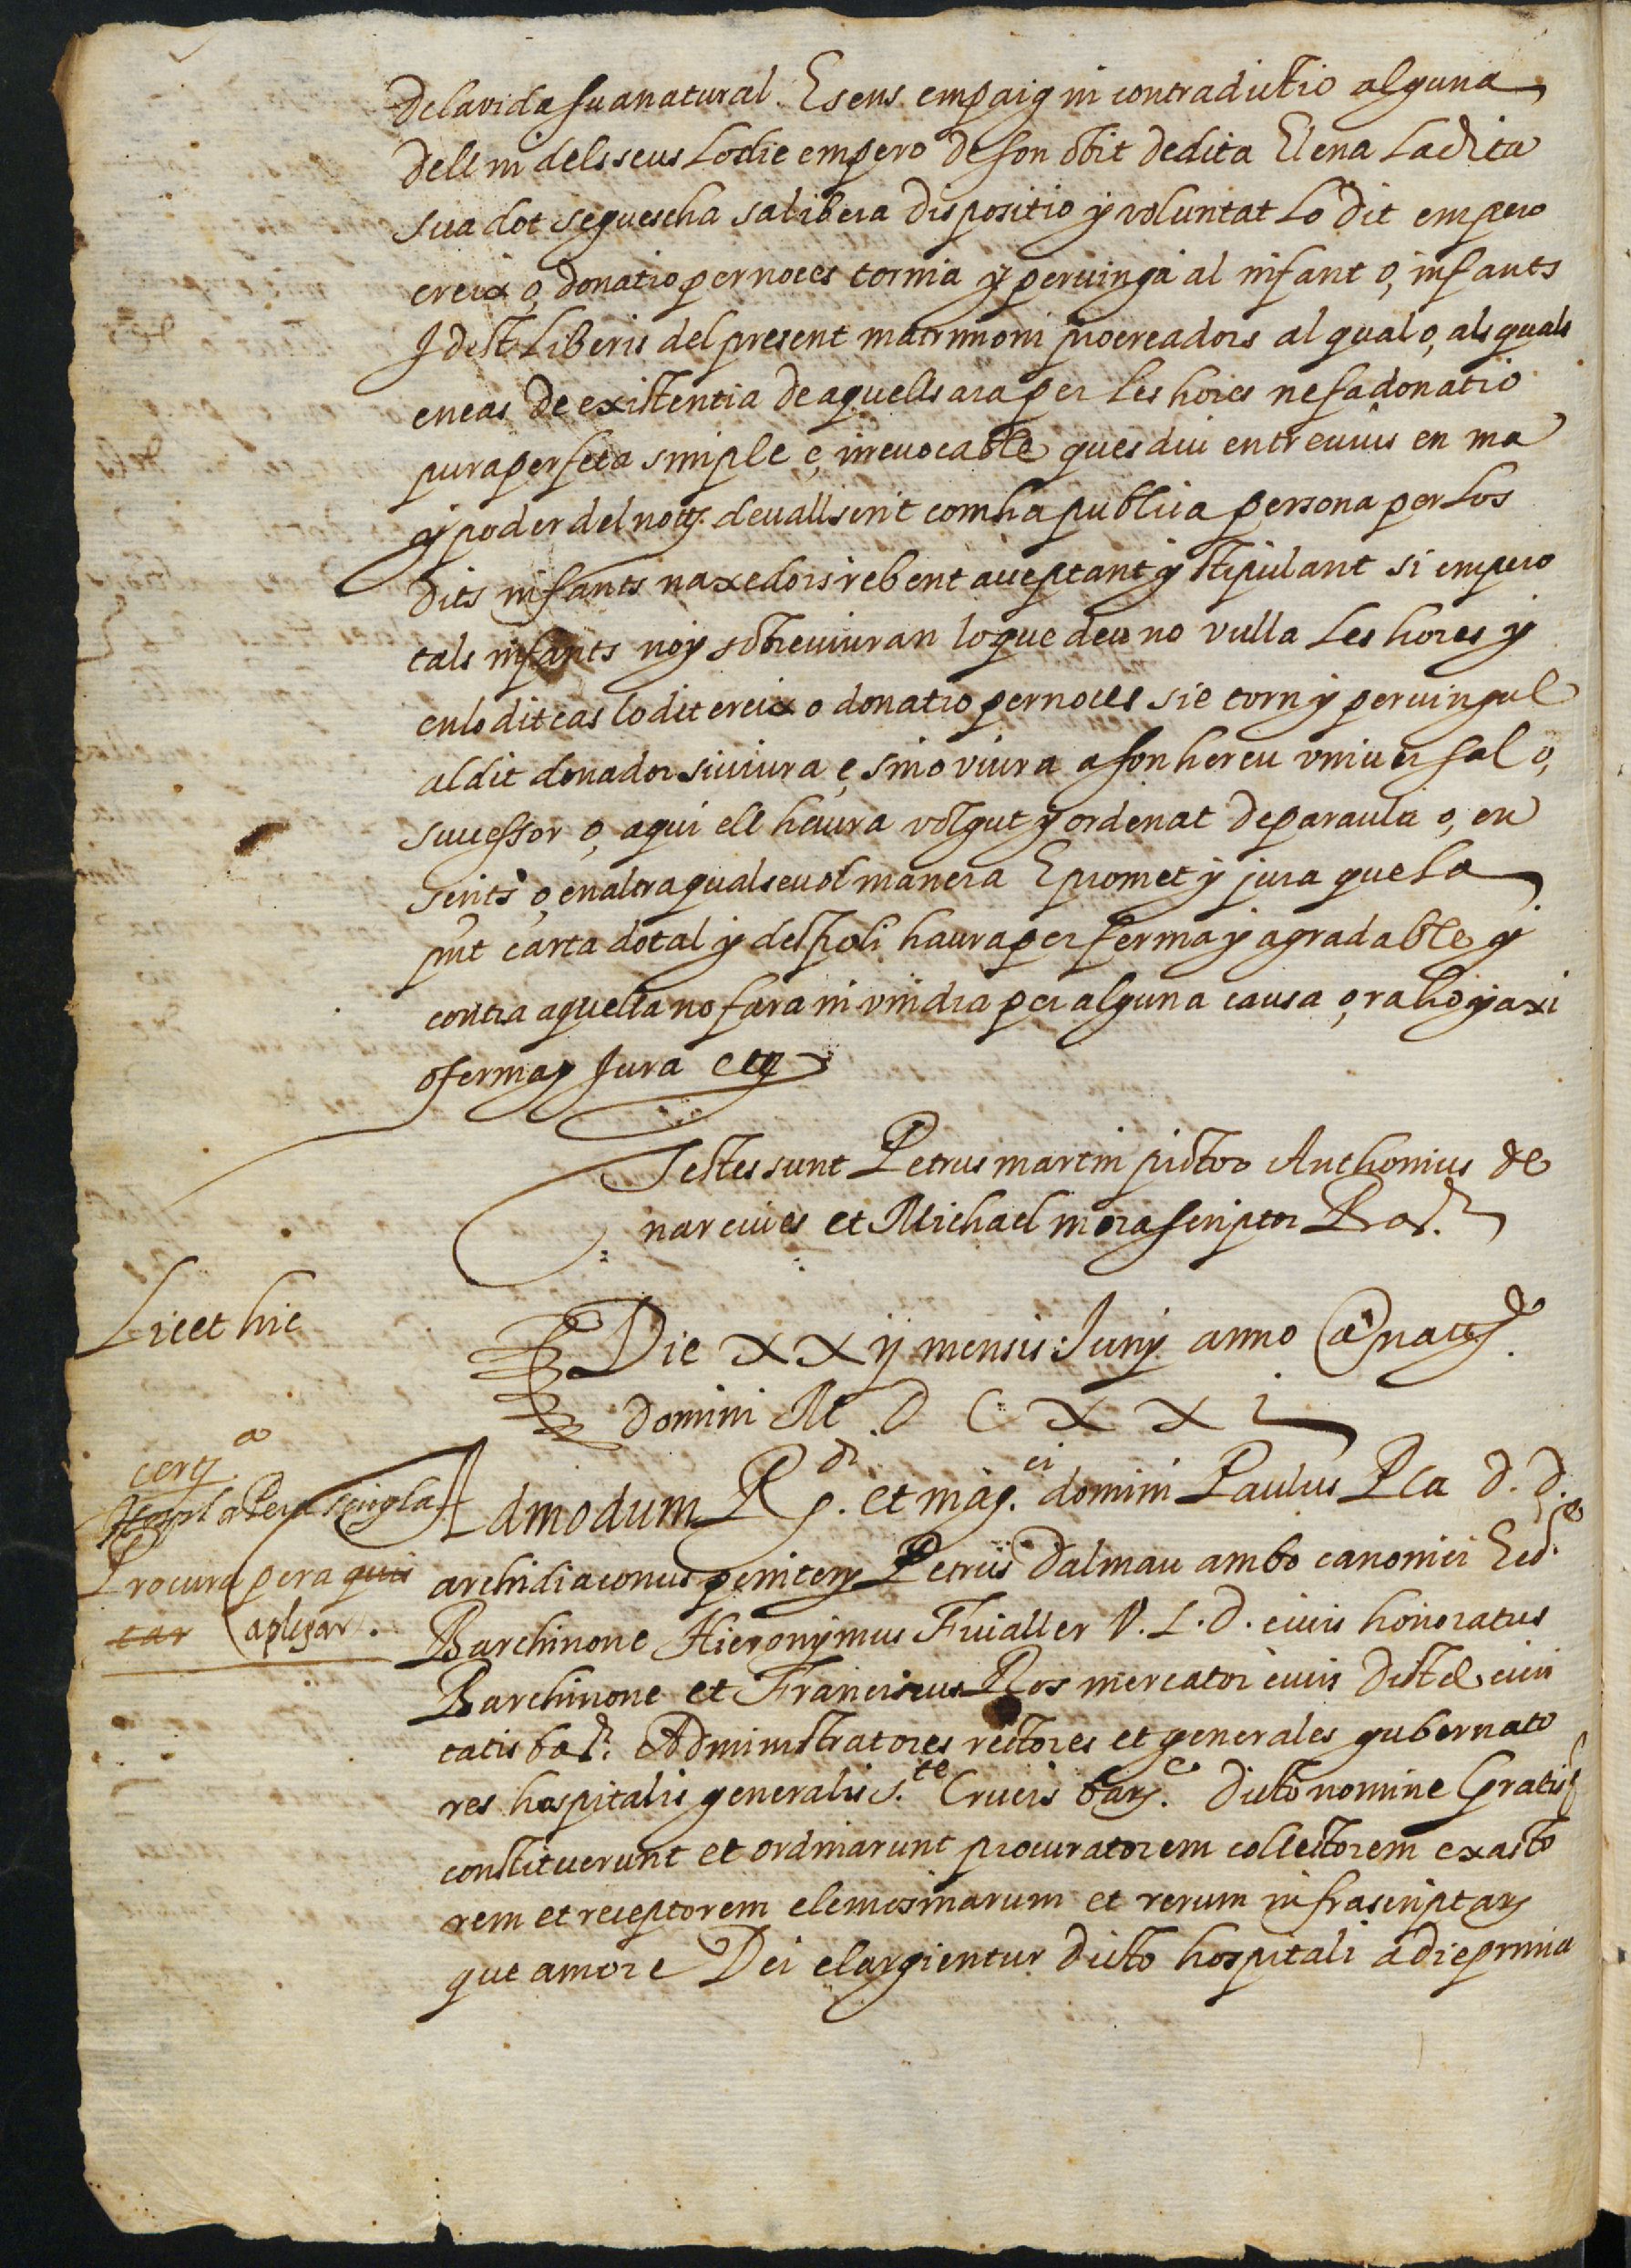 de la vida sua natural. E sens empaig ni contradictio alguna
dell ni dels seus Lo die empero de son obit de dita Elena La dita
sua dot seguescha sa libera dispositio y voluntat Lo dit empero
creix o, donatio per noces tornia y pervinga al infant o, infants
Idest Liberis del present matrimoni procreadors al qual o, als quals
en cas de existentia de aquells ara per les hores ne fa donatio
pura perfeta simple e, irrevocable ques diu entre vius en ma
y poder del nott. devall scrit com ha publica persona per los
dits infants naxedors rebent acceptant y stipulant si empero
tals infants noy sobreviuran lo que deu no vulla les hores y
en lo dit cas lo dit creix o donatio per noces sie torn y pervingue
al dit donador si viura e, si no viura a son hereu universal o,
successor o, a qui ell haura volgut y ordenat de paraula o, en
scrits o, en altra qualsevol manera E promet y jura que la
pnt carta dotal y despoli haura per ferma y agradable y
contra aquella no fara ni vindra per alguna causa o, raho y axi
o ferma y Jura etc
Testes sunt Petrus martin pictor Anthonius de
nar cives et Michael mora scriptor Bar.
Licet hic
Die xxij mensis Junij anno a natte
domini M D C x x i
Procura pera quis
tar aplegar.
Admodum Rdi. et mag.ci domini Paulus Pla d. d.
archidiaconus Petrus Dalmau ambo canonici Eccl.e
Barchinone Hieronymus Fivaller V. L. D. civis honoratus
Barchinone et Franciscus Ros mercator civis dicte civi
tatis bar. Administratores rectores et generales gubernato
res hospitalis generalis S.te Crucis bar. dicto nomine Gratis
constituerunt et ordinarunt procuratorem collectorem exacto
rem et receptorem elemosinarum et rerum infrascriptar
que amore Dei elargientur dicto hospitali a die prima